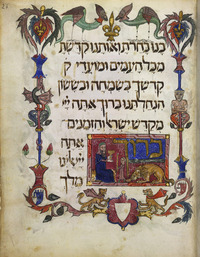 בנו בחרת ואותנו קדשת
מכל העמים ומועדי ק
קדשך בשמחה ובששון
הנחלתנו ברוך אתה יי
מקדש ישראל והזמנים
אתה
אלהינו
מלך